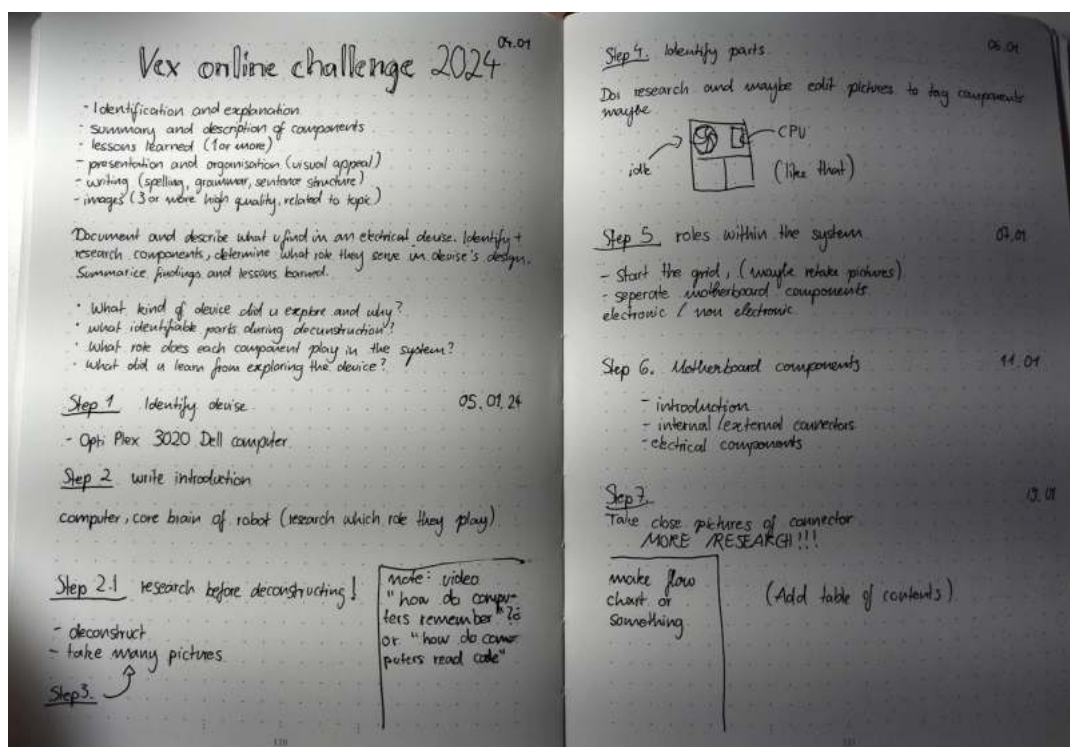 04.01
Vex online challenge 2024
- Identification and explanation
- summary and description of components
- lessons learned (1 or more)
- presentation and organisation (visual appeal)
- writing (spelling, grammar, sentence structure)
- images (3 or more high quality, related to topic)
Document and describe what u find in an electrical devise. Identify +
research components, determine what role they serve in devise's design.
Summarice findings and lessons learned.
• What kind of device did u explore and why?
• what identifiable parts during deconstruction?
• What role does each component play in the system?
• What did u learn from exploring the device?
Step 1 Identify devise 05.01.24
- Opti Plex 3020 Dell computer
Step 2 write introduction
computer, core brain of robot (research which role they play)
Step 2.1 research before deconstructing!
- deconstruct
- take many pictures
Step 3.
note: video
"how do compu-
ters remember"
or "how do com-
puters read code"
120
Step 4. Identify parts 06.01
research and maybe edit pictures to tag components
maybe
idk
CPU
(like that)
Step 5. roles within the system 07.01
- Start the grid, (maybe retake pictures)
- seperate motherboard components
electronic / non electronic
Step 6. Motherboard components 11.01
- introduction
- internal/external connectors
- electrical components
Step 7. 19.01
Take close pictures of connector
MORE RESEARCH!!!
make flow
chart or
something
(Add table of contents)